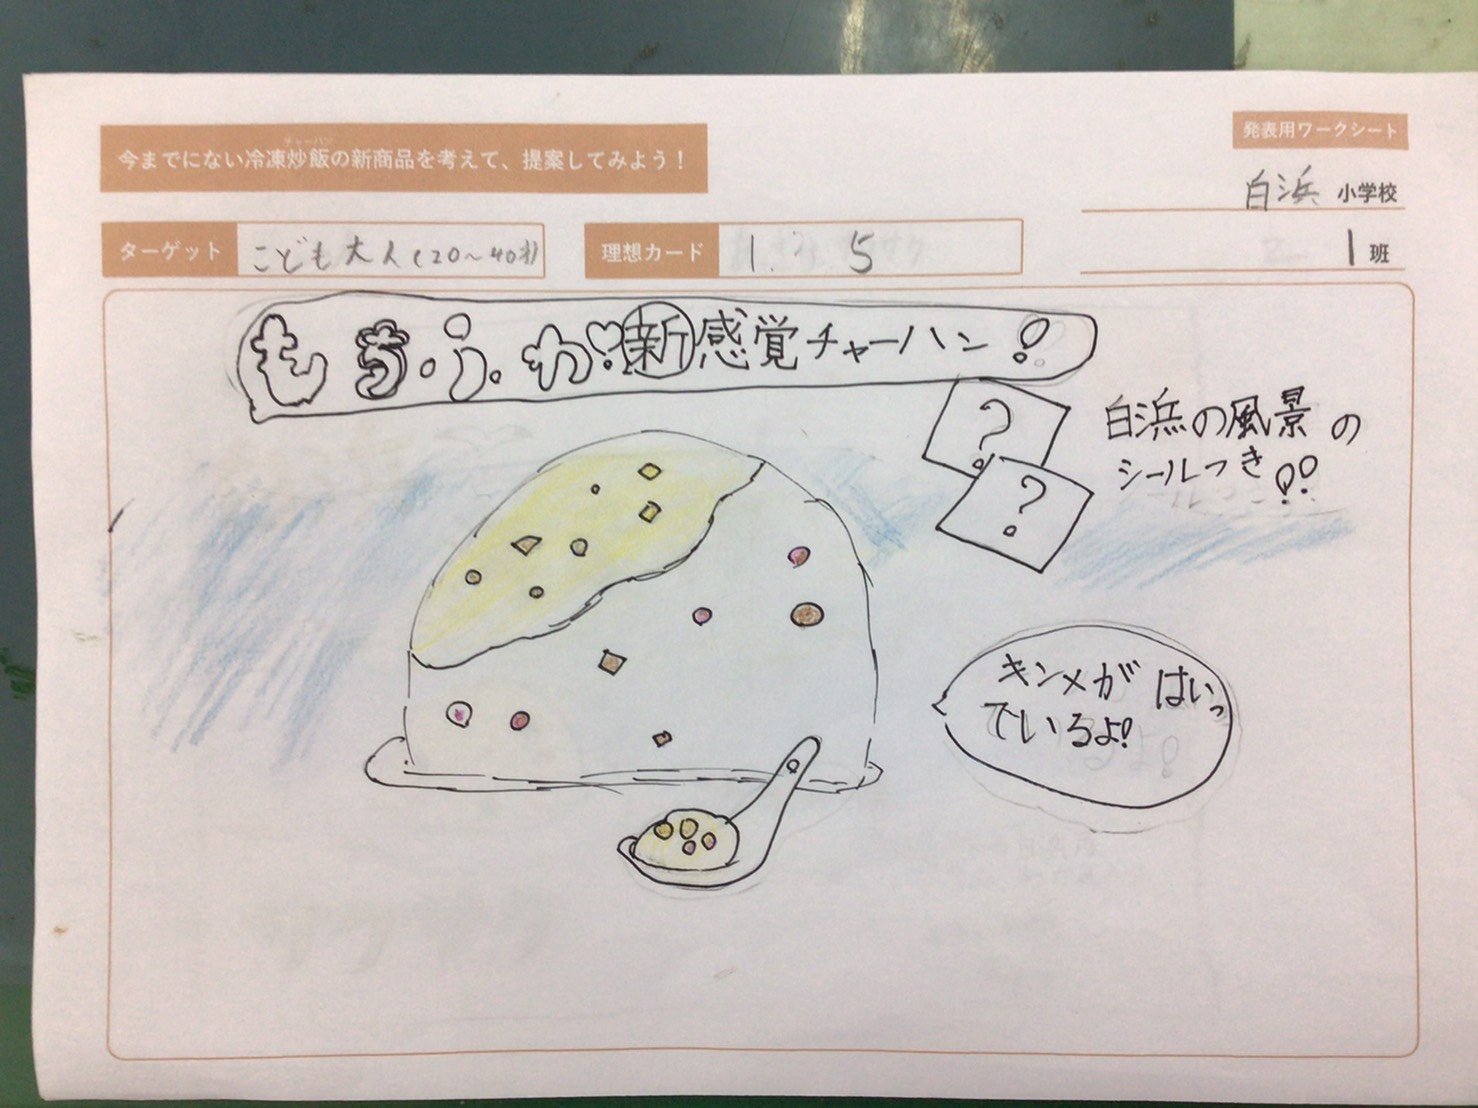 今までにない冷凍炒飯の新商品を考えて、提案してみよう！
チャーハン
発表用ワークシート
白浜 小学校
ターゲット こども大人(20〜40才)
理想カード 1. 5
1 班
もち・ふ・わ新感覚チャーハン!
? 白浜の風景の
? シールつき!!
キンメがはいっ
ているよ!